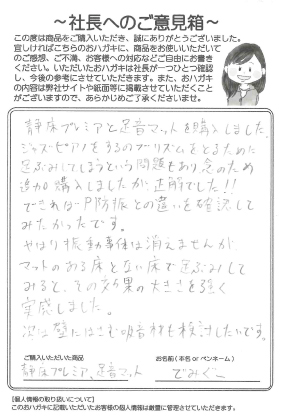 ～社長へのご意見箱～
この度は商品をご購入いただき、誠にありがとうございました。
宜しければこちらのおハガキに、商品をお使いいただいて
のご感想、ご不満、お客様への対応などご自由にお書き
ください。いただいたおハガキは社長が一つひとつ確認
し、今後の参考にさせていただきます。また、おハガキ
の内容は弊社サイトや紙面等に掲載させていただくこと
がございますので、あらかじめご了承くださいませ。
静床プレミアと足音マットを購入しました。
ジャズピアノをするのでリズムをとるために
足ぶみしてしまうという問題もあり念のため
追加購入しましたが正解でした!!
できればP防振との違いを確認して
みたかったです。
やはり振動事体は消えませんが
マットのある床とない床で足ぶみして
みると、その効果の大きさを強く
実感しました。
次は壁にはさむ吸音材も検討したいです。
ご購入いただいた商品
静床プレミア、足音マット
お名前(本名 or ペンネーム)
でみぐー
【個人情報の取り扱いについて】
このおハガキに記載いただいたお客様の個人情報は厳重に管理させていただきます。